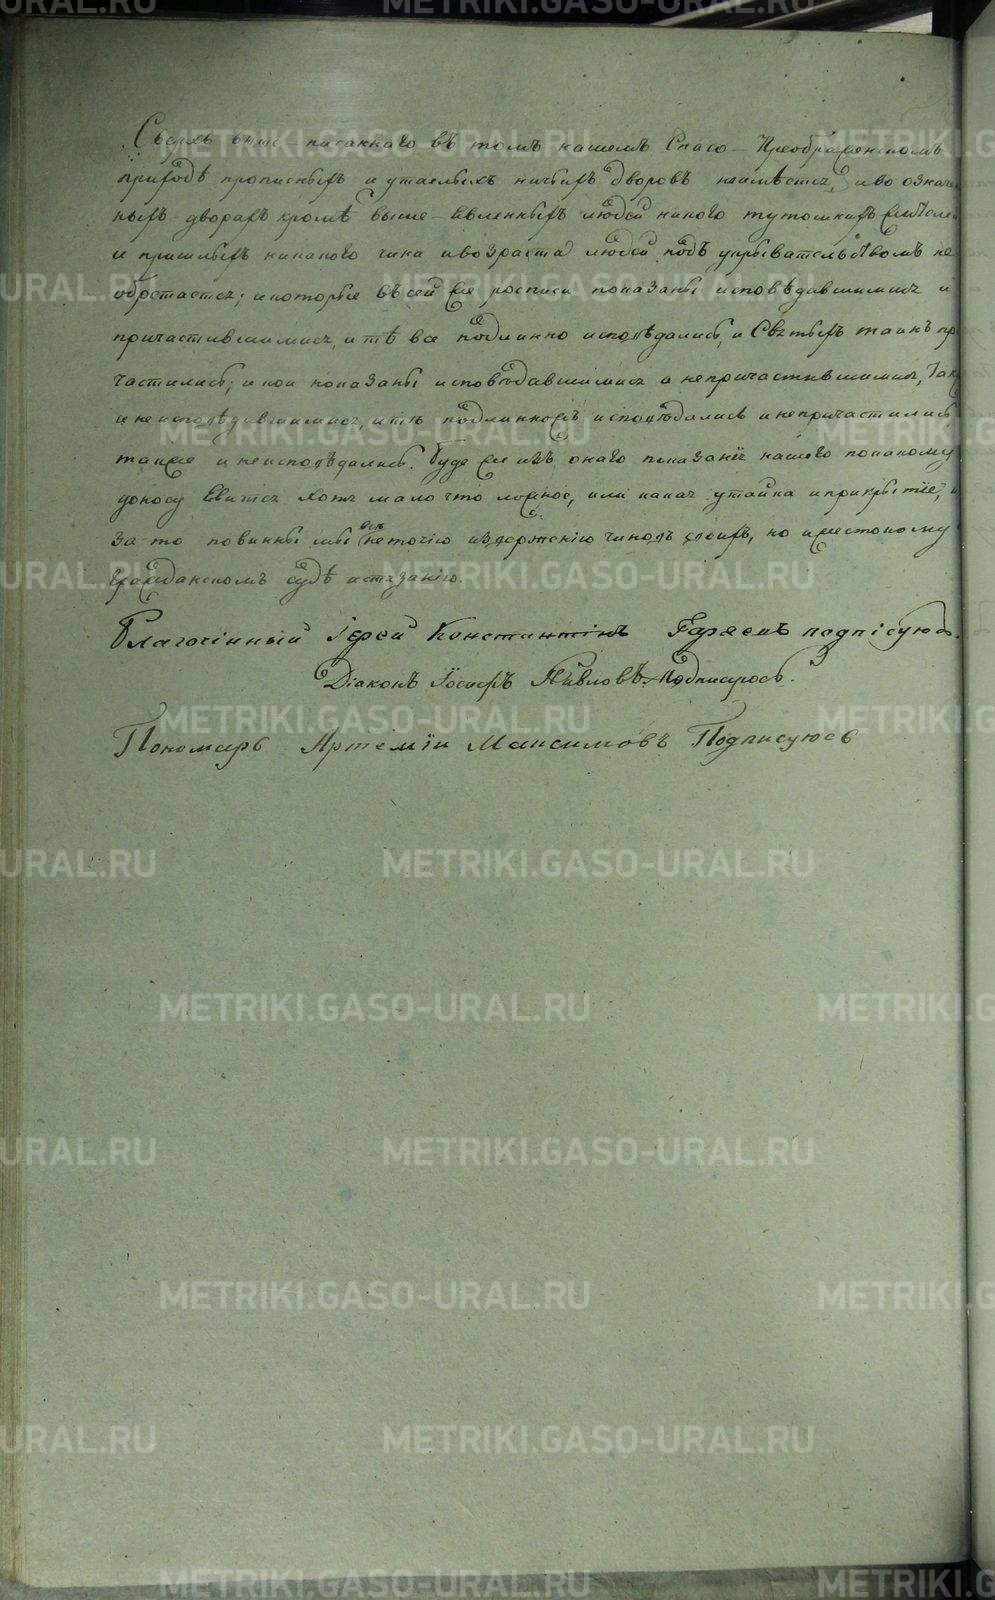 Сверхъ выше писаннаго въ томъ нашемъ Спасо-Преображенскомъ
приходѣ прописныхъ и утаенныхъ ничьихъ дворовъ неимѣется, и во означен
ныхъ дворахъ кромѣ выше-явленныхъ людей никого тутошнихъ жителей
и пришлыхъ никакого чина и возраста людей подъ укрывательствомъ не
обретается; и которые въ сей же росписи показаны исповѣдавшимися и
причастившимися, и тѣ все подлинно исповѣдались, и Святыхъ таинъ при
частились; и кои показаны исповѣдавшимися а непричастившимися, так
и неисповѣдавшимися, и тѣ подлинножъ исповѣдались и непричастились
также и неисповѣдались. Буде же изъ онаго показанія нашего покакому
доносу явится хотя мало что ложное, или какая утайка и прикрытіе, и
за то повинны мы неточію изверженію чиновъ своихъ, но и жестокому
гражданскомъ судѣ истязанію.
Благочінный Іерей Константінъ подпісуюс.
Діаконъ Іосифъ Павловъ подписуюсь.
Пономарь Артемій Максимовъ Подписуюсь
METRIKI.GASO-URAL.RU